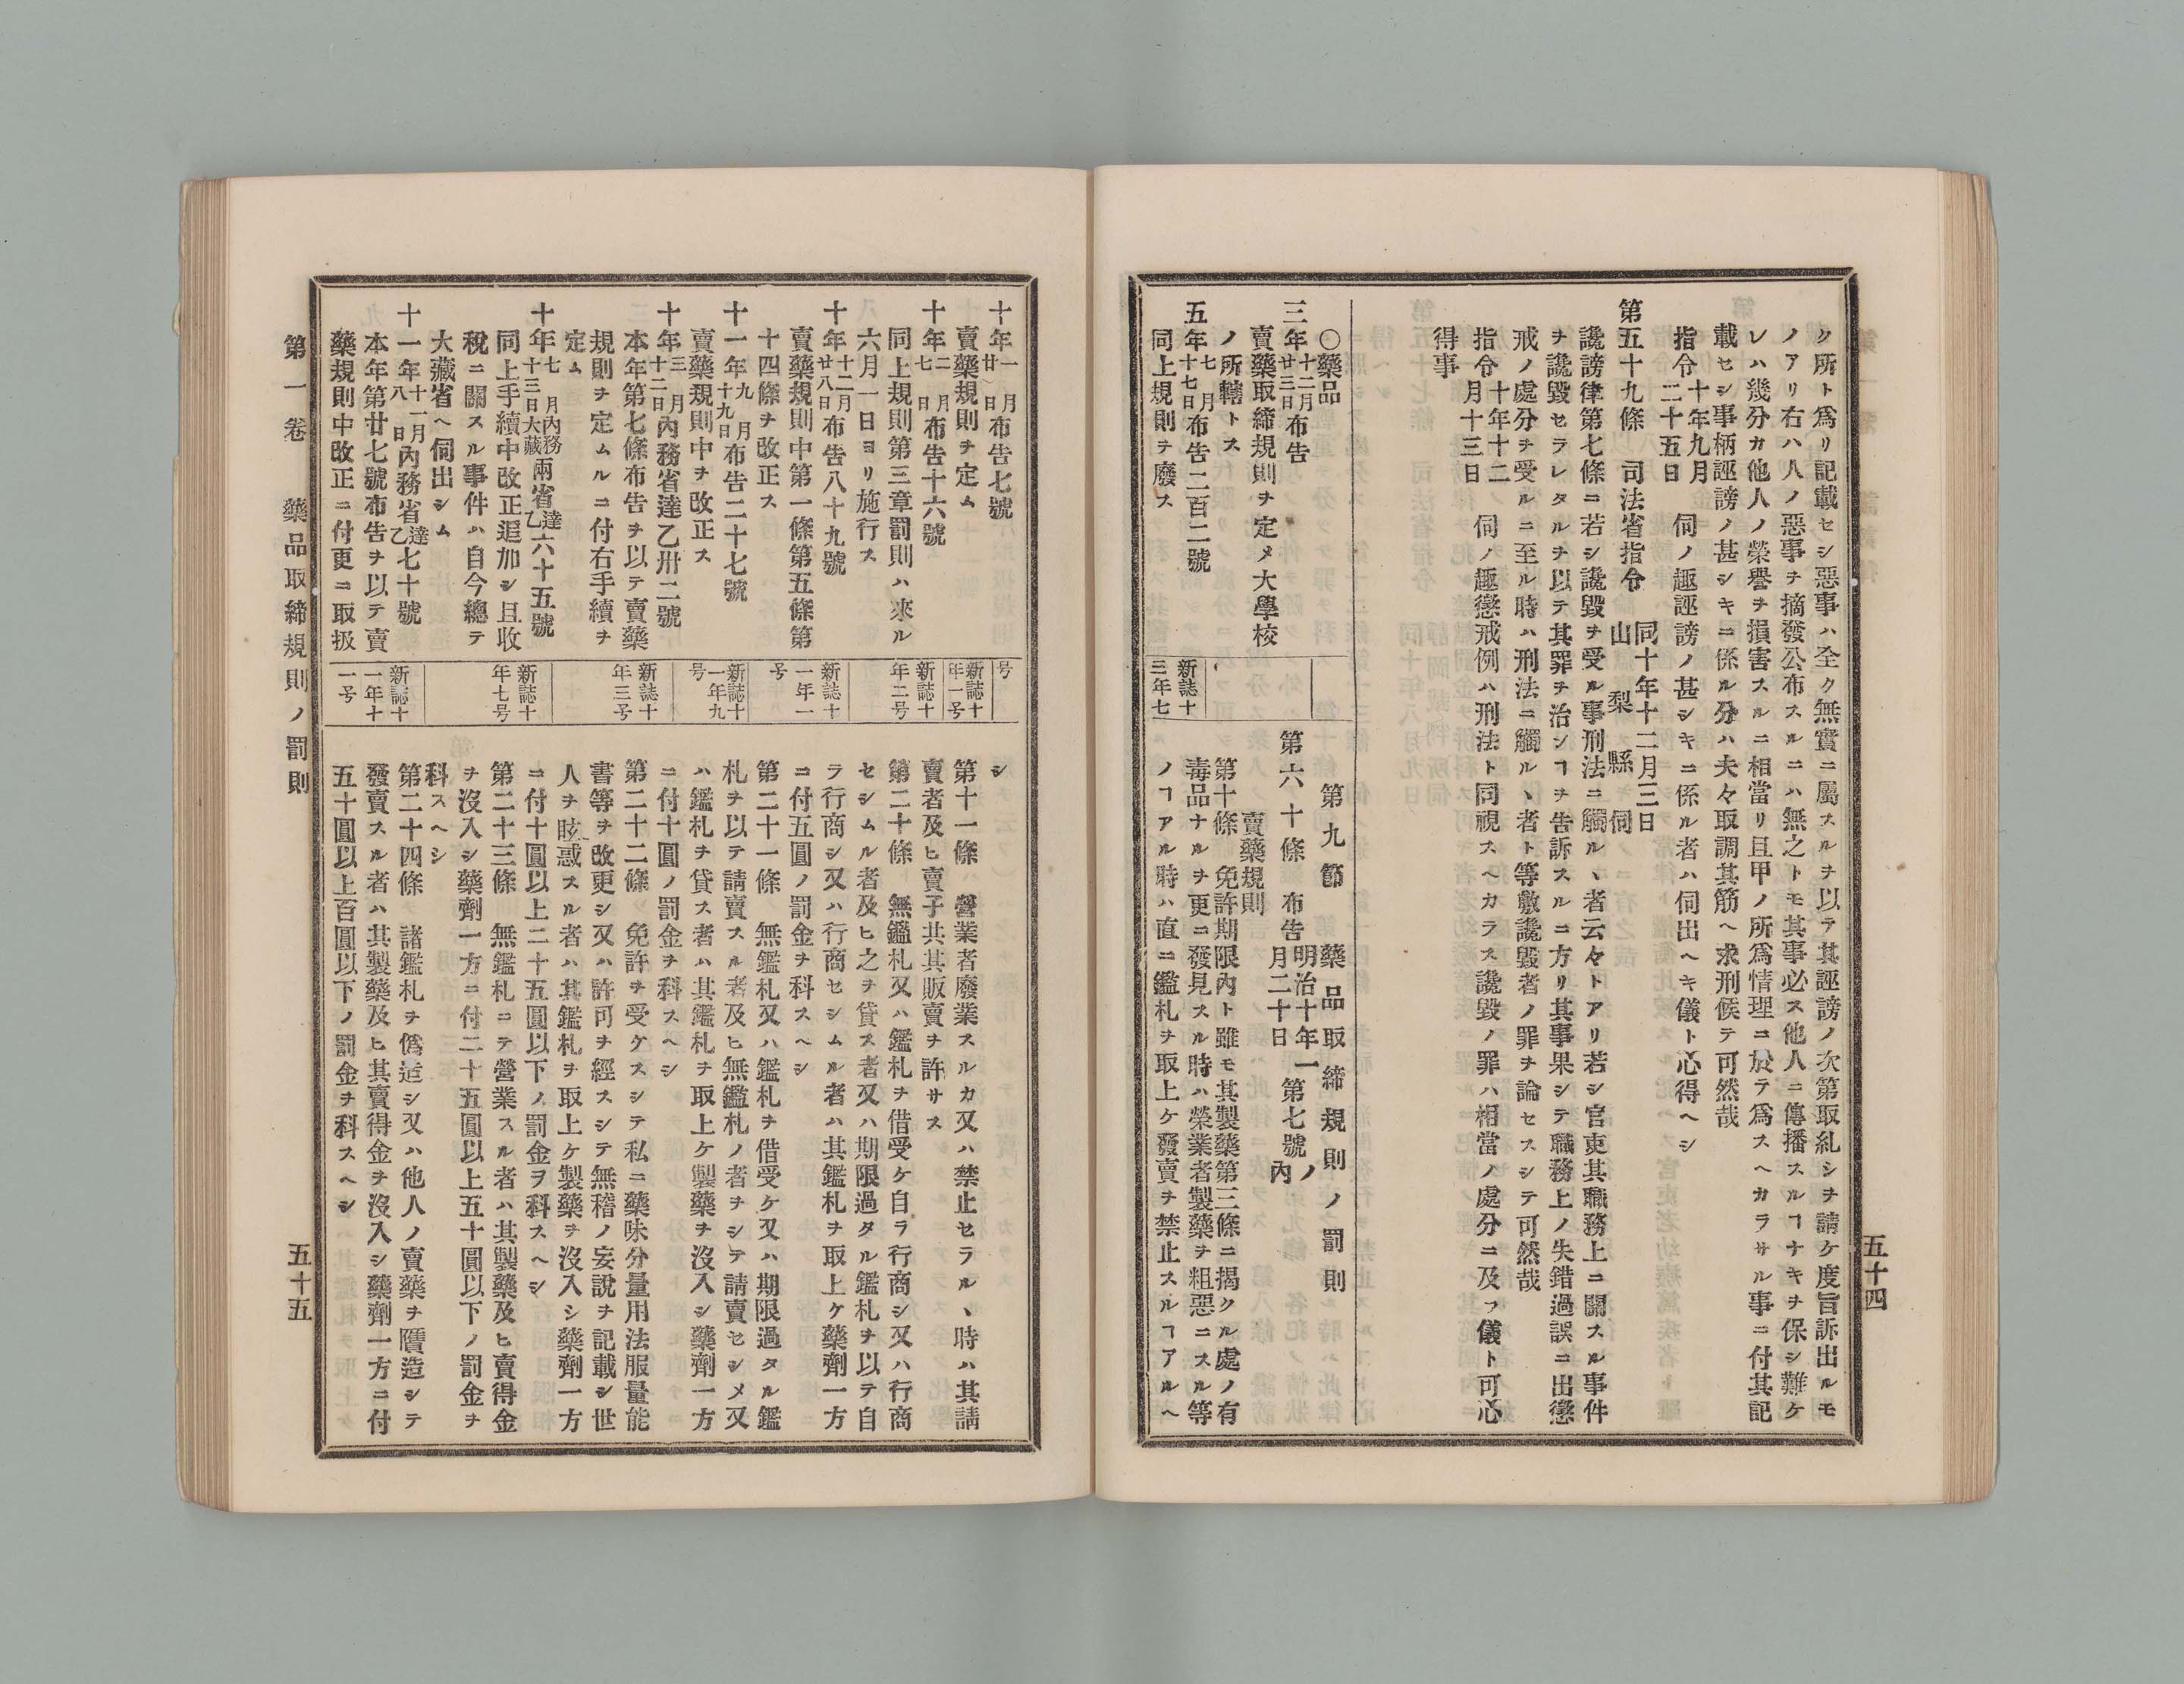 ク所ト爲リ記載セシ惡事ハ全ク無實ニ屬スルヲ以テ其誣謗ノ次第取糺シヲ請ケ度旨訴出ルモ
ノアリ右ハ人ノ惡事ヲ摘發公布スルニハ無之トモ其事必ス他人ニ傳播スルヿナキヲ保シ難ケ
レハ幾分カ他人ノ榮譽ヲ損害スルニ相當リ且甲ノ所爲情理ニ於テ爲スヘカラサル事ニ付其記
載セシ事柄誣謗ノ甚シキニ係ル分ハ夫々取調其筋ヘ求刑候テ可然哉
指令 十年九月二十五日 伺ノ趣誣謗ノ甚シキニ係ル者ハ伺出ヘキ儀ト心得ヘシ
第五十九條 司法省指令 同十年十二月三日 山梨縣伺
讒謗律第七條ニ若シ讒毀ヲ受ル事刑法ニ觸ルヽ者云々トアリ若シ官吏其職務上ニ關スル事件
ヲ讒毀セラレタルヲ以テ其罪ヲ治シヿヲ告訴スルニ方リ其事果シテ職務上ノ失錯過誤ニ出懲
戒ノ處分ヲ受ルニ至ル時ハ刑法ニ觸ルヽ者ト等敷讒毀者ノ罪ヲ論セスシテ可然哉
指令 十年十二月十三日 伺ノ趣懲戒例ハ刑法ト同視スヘカラス讒毀ノ罪ハ相當ノ處分ニ及フ儀ト可心
得事
〇藥品
三年十二月廿三日布告
賣藥取締規則ヲ定メ大學校
ノ所轄トス
五年七月十七日布告二百二號
同上規則ヲ廢ス
新誌十三年七
第九節 藥品取締規則ノ罰則
第六十條 布告 明治十年一月二十日 第七號ノ內
賣藥規則
第十條 免許期限內ト雖モ其製藥第三條ニ揭クル處ノ有
毒品ナルヲ更ニ發見スル時ハ榮業者製藥ヲ粗惡ニスル等
ノヿアル時ハ直ニ鑑札ヲ取上ケ發賣ヲ禁止スルヿアルヘ
五十四
十年一月廿日布告七號
賣藥規則ヲ定ム
十年二月七日布告十六號
同上規則第三章罰則ハ來ル
六月一日ヨリ施行ス
十年十二月廿八日布告八十九號
賣藥規則中第一條第五條第
十四條ヲ改正ス
十一年九月十九日布告二十七號
賣藥規則中ヲ改正ス
十年三月十二日內務省達乙卅二號
本年第七條布告ヲ以テ賣藥
規則ヲ定ムルニ付右手續ヲ
定ム
十年七月十三日內務大藏兩省達乙六十五號
同上手續中改正追加シ且收
稅ニ關スル事件ハ自今總テ
大藏省ヘ伺出シム
十一年十一月八日內務省達乙七十號
本年第廿七號布告ヲ以テ賣
藥規則中改正ニ付更ニ取扱
号
新誌十年一号
新誌十年二号
新誌十一年一号
新誌十一年九号
新誌十年三号
新誌十年七号
新誌十一年十一号
シ
第十一條 營業者廢業スルカ又ハ禁止セラルヽ時ハ其請
賣者及ヒ賣子共其販賣ヲ許サス
第二十條 無鑑札又ハ鑑札ヲ借受ケ自ラ行商シ又ハ行商
セシムル者及ヒ之ヲ貸ス者又ハ期限過タル鑑札ヲ以テ自
ラ行商シ又ハ行商セシムル者ハ其鑑札ヲ取上ケ藥劑一方
ニ付五圓ノ罰金ヲ科スヘシ
第二十一條 無鑑札又ハ鑑札ヲ借受ケ又ハ期限過タル鑑
札ヲ以テ請賣スル者及ヒ無鑑札ノ者ヲシテ請賣セシメ又
ハ鑑札ヲ貸ス者ハ其鑑札ヲ取上ケ製藥ヲ沒入シ藥劑一方
ニ付十圓ノ罰金ヲ科スヘシ
第二十二條 免許ヲ受ケスシテ私ニ藥味分量用法服量能
書等ヲ改更シ又ハ許可ヲ經スシテ無稽ノ妄說ヲ記載シ世
人ヲ眩惑スル者ハ其鑑札ヲ取上ケ製藥ヲ沒入シ藥劑一方
ニ付十圓以上二十五圓以下ノ罰金ヲ科スヘシ
第二十三條 無鑑札ニテ營業スル者ハ其製藥及ヒ賣得金
ヲ沒入シ藥劑一方ニ付二十五圓以上五十圓以下ノ罰金ヲ
科スヘシ
第二十四條 諸鑑札ヲ僞造シ又ハ他人ノ賣藥ヲ贋造シテ
發賣スル者ハ其製藥及ヒ其賣得金ヲ沒入シ藥劑一方ニ付
五十圓以上百圓以下ノ罰金ヲ科スヘシ
第一卷 藥品取締規則ノ罰則 五十五